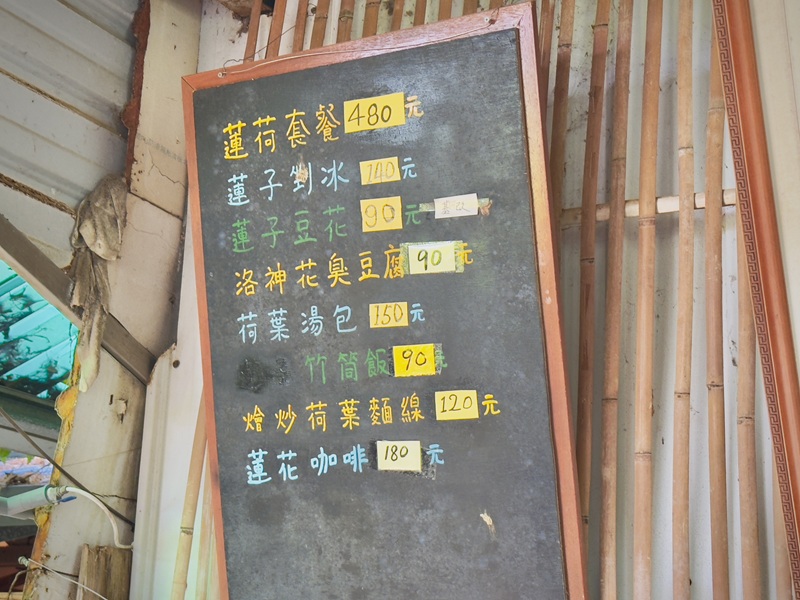 蓮荷套餐480元
蓮子剉冰140元
蓮子豆花90元
洛神花臭豆腐90元
荷葉湯包150元
竹筒飯90
燴炒荷葉麵線120元
蓮花咖啡180元